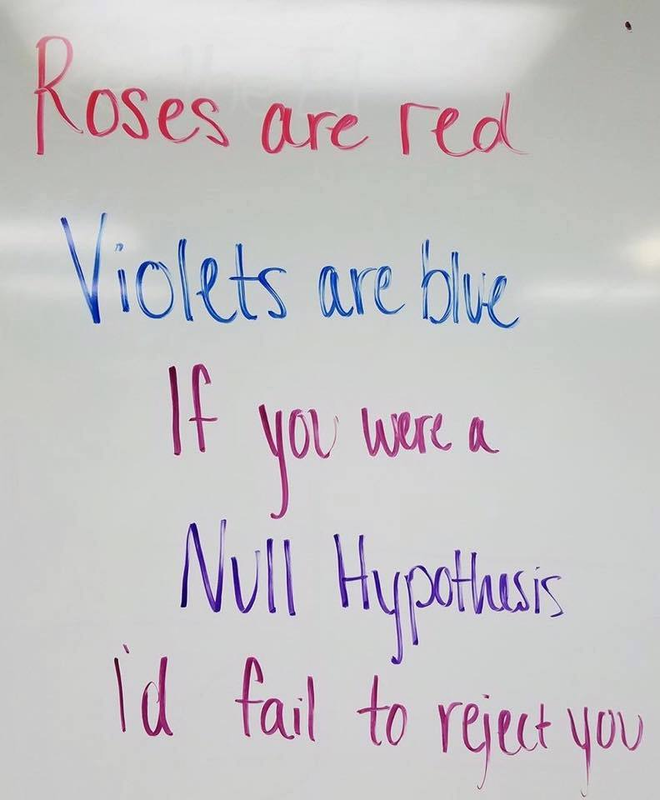 Roses are red
Violets are blue
If you were a
Null Hypothesis
I'd fail to reject you